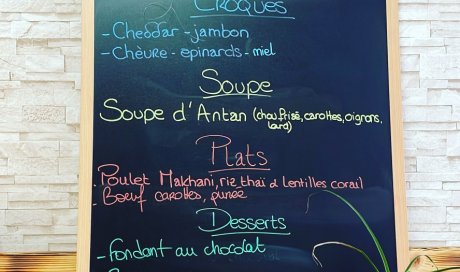 CROQUES
- Cheddar - jambon
- Chèvre - épinards - miel
Soupe
Soupe d'Antan (chou frisé, carottes, oignons,
lard)
Plats
- Poulet Makhani, riz thaï & lentilles corail
- Boeuf carottes, purée
Desserts
- Fondant au chocolat